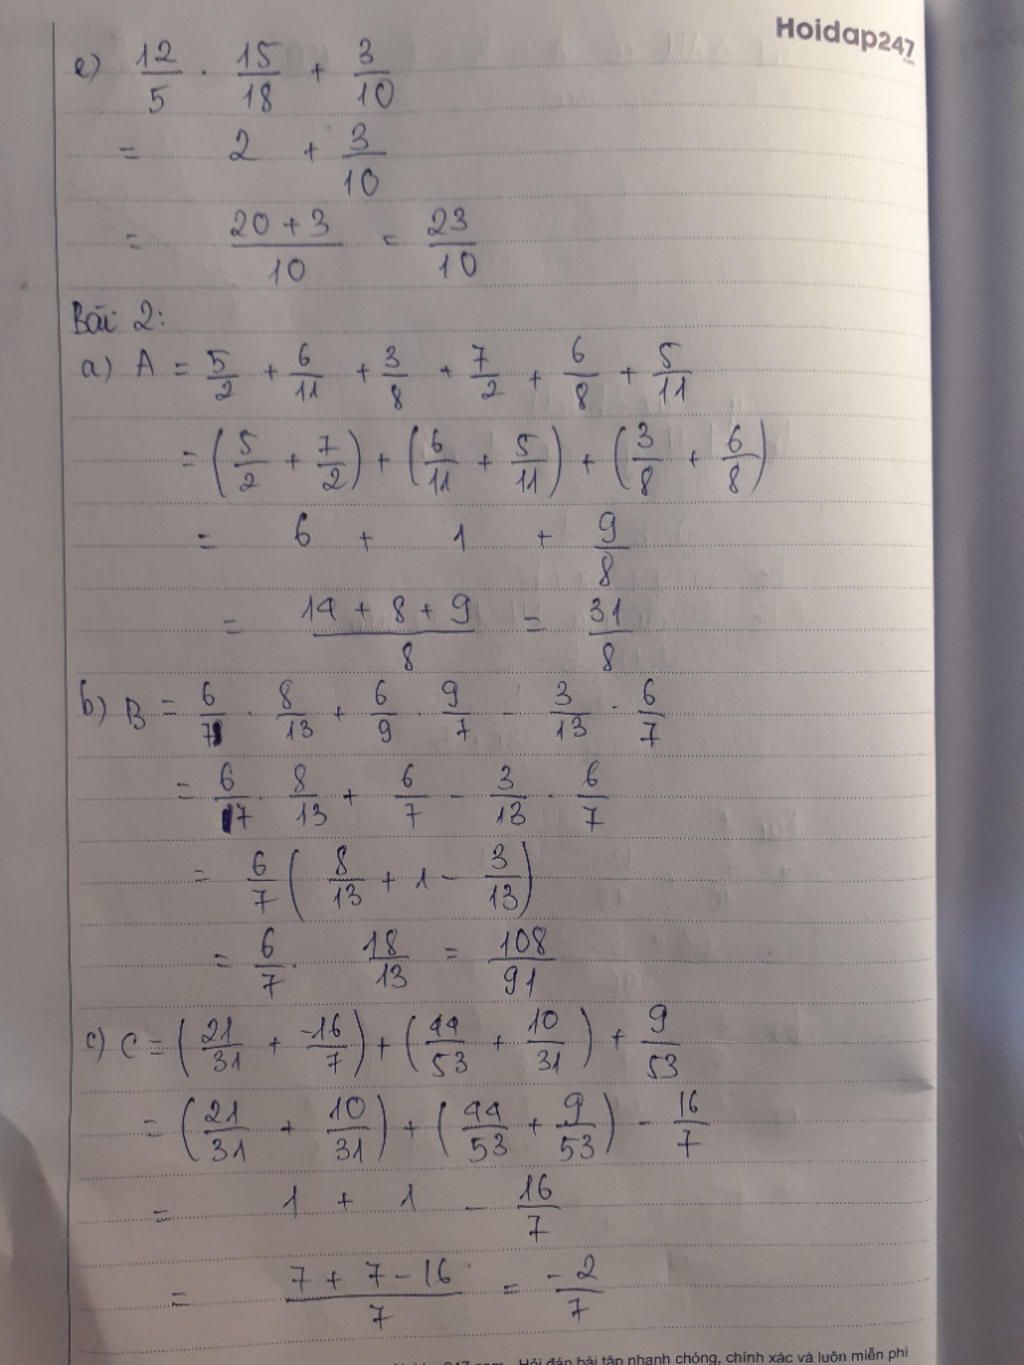 Hoidap247
.com
e) 12/5 . 15/18 + 3/10
= 2 + 3/10
= (20 + 3)/10 = 23/10
Bài 2:
a) A = 5/2 + 6/11 + 3/8 + 7/2 + 6/8 + 5/11
= (5/2 + 7/2) + (6/11 + 5/11) + (3/8 + 6/8)
= 6 + 1 + 9/8
= (14 + 8 + 9)/8 = 31/8
b) B = 6/7 . 8/13 + 6/9 . 9/7 - 3/13 . 6/7
= 6/7 . 8/13 + 6/7 - 3/13 . 6/7
= 6/7 (8/13 + 1 - 3/13)
= 6/7 . 18/13 = 108/91
c) C = (21/31 + -16/7) + (44/53 + 10/31) + 9/53
= (21/31 + 10/31) + (44/53 + 9/53) - 16/7
= 1 + 1 - 16/7
= (7 + 7 - 16)/7 = -2/7
Hỏi đáp bài tập nhanh chóng, chính xác và luôn miễn phí